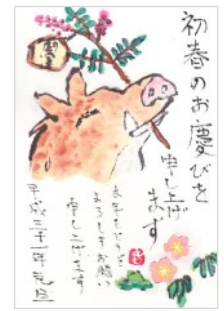 初春のお慶びを
申し上げ
ます
本年もどうぞ
よろしくお願い
申し上げます
平成三十一年元旦